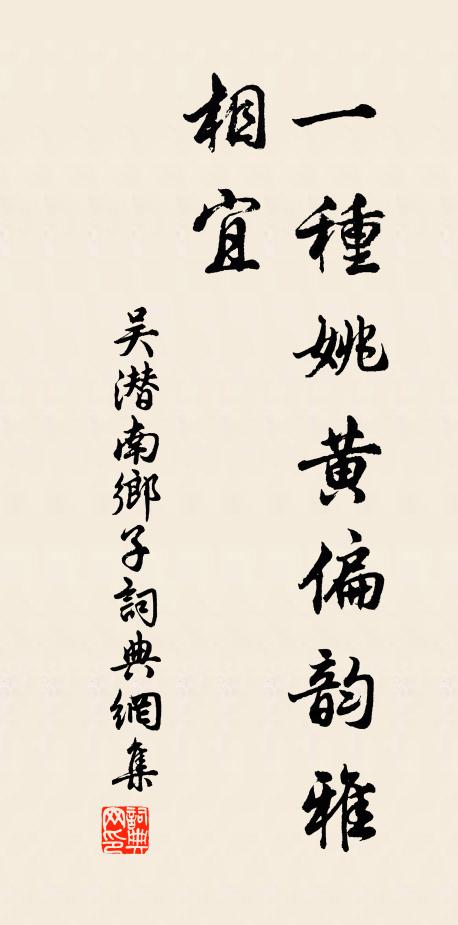 一種姚黄偏韵雅
相宜
吴潜南鄉子詞典網集
詞典网印